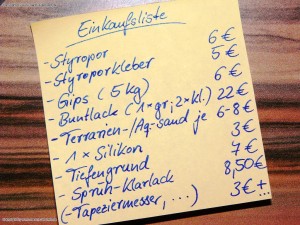 Einkaufsliste
- Styropor 6 €
- Styroporkleber 5 €
- Gips (5 kg) 6 €
- Buntlack (1x gr; 2x kl.) 22 €
- Terrarien-/Aq.-sand je 6-8 €
- 1 x Silikon 3 €
- Tiefengrund 7 €
- Sprüh-Klarlack 8,50 €
(- Tapeziermesser, ...) 3 € + ...